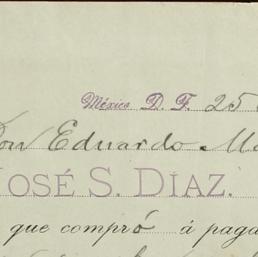 México D. F. 25
Don Eduardo
JOSÉ S. DÍAZ.
que compró á